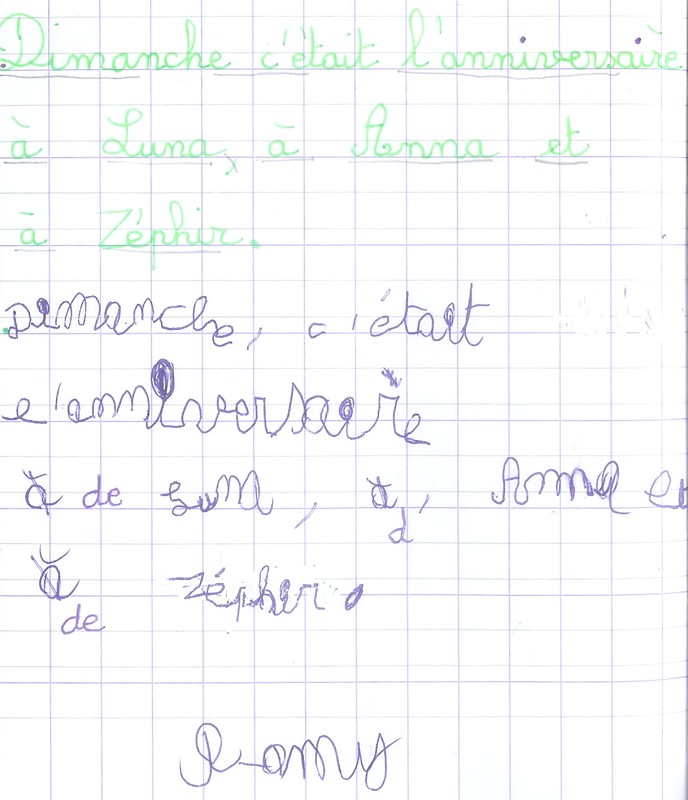 Dimanche c'était l'anniversaire
à Luna, à Anna et
à Zéphir.
Dimanche, c'était
l'anniversaire
à de Luna, à d', Anna et
à de Zéphir.
Romy